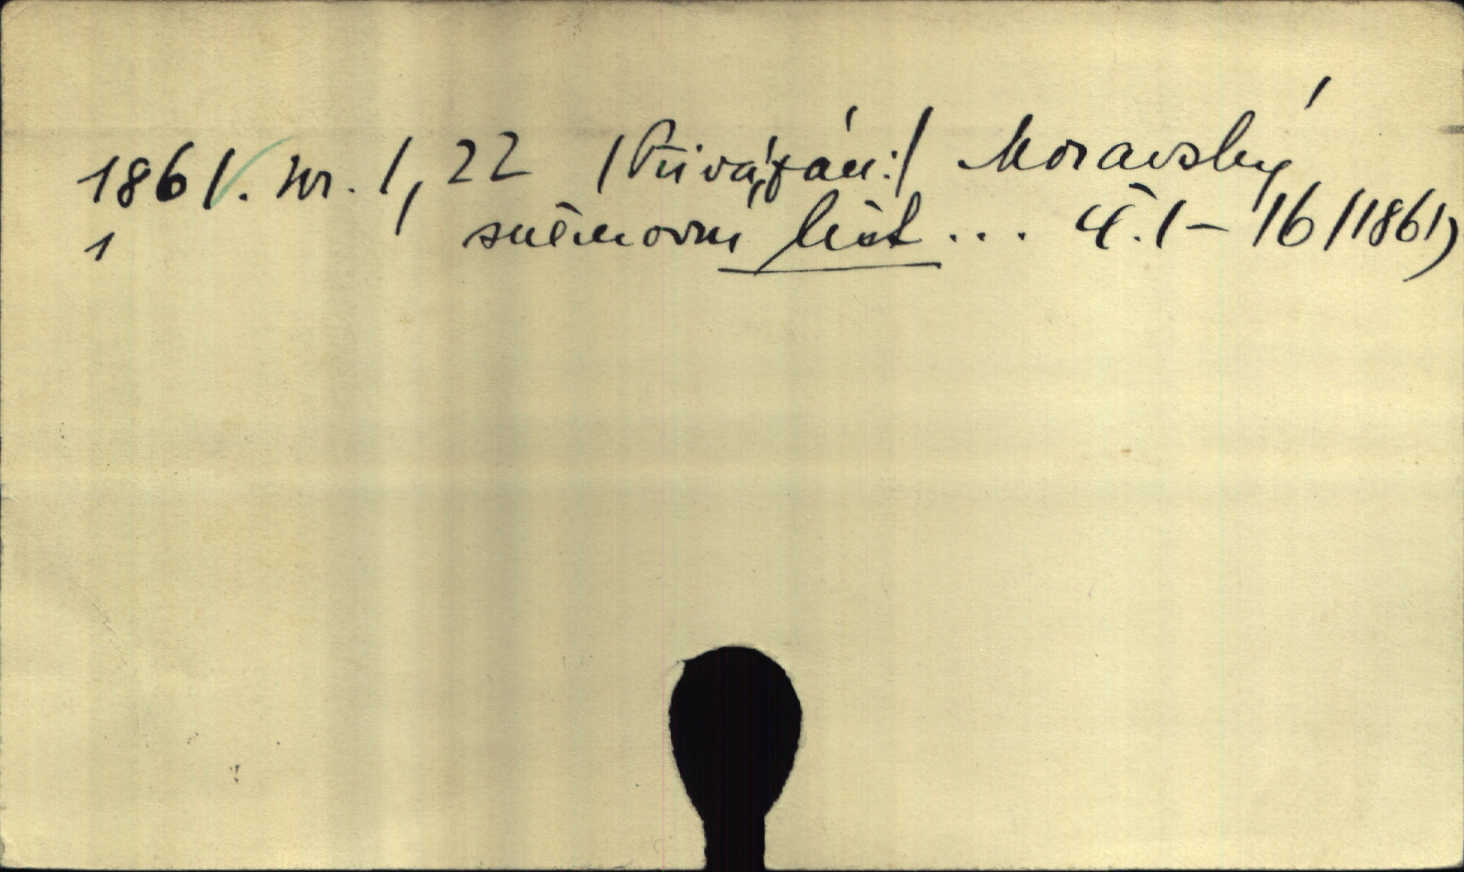 1861. nr. 1, 22 /Přivázán:/ Moravský
1 sněmovní list ... č. 1 – 16 /1861)